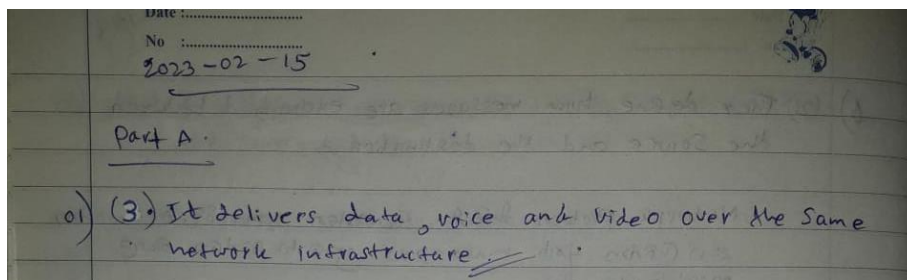 Date :..............................
No :..............................
2023-02-15
Part A.
01) (3.) It delivers data, voice and video over the same
network infrastructure.